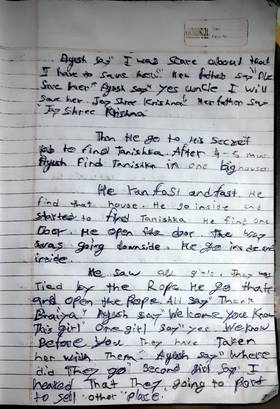 Ayush say" I was scare about that
I have to save her." Her father say" Plz
save her" Ayush say" yes uncle I will
save her. Jay Shree Krishna" Her father say
"Jay Shree Krishna"
Then He go to his secret
lab to find Tanishka. After 4-5 min
Ayush find Tanishka in one big house.
He ran fast and fast. He
find that house. He go inside and
started to find Tanishka. He find one
Door. He open the door. The way
was going downside. He go inside and
inside.
He saw all girls. They was
Tied by the Rope. He go that
and open the Rope. All say" Thank
Bhaiya" Ayush say" Welcome you know
This girl" One girl say" yes. We know
Before you They have Taken
her with Them." Ayush say" Where
did They go" Second girl say" I
heared That They going to port
to sell other place.